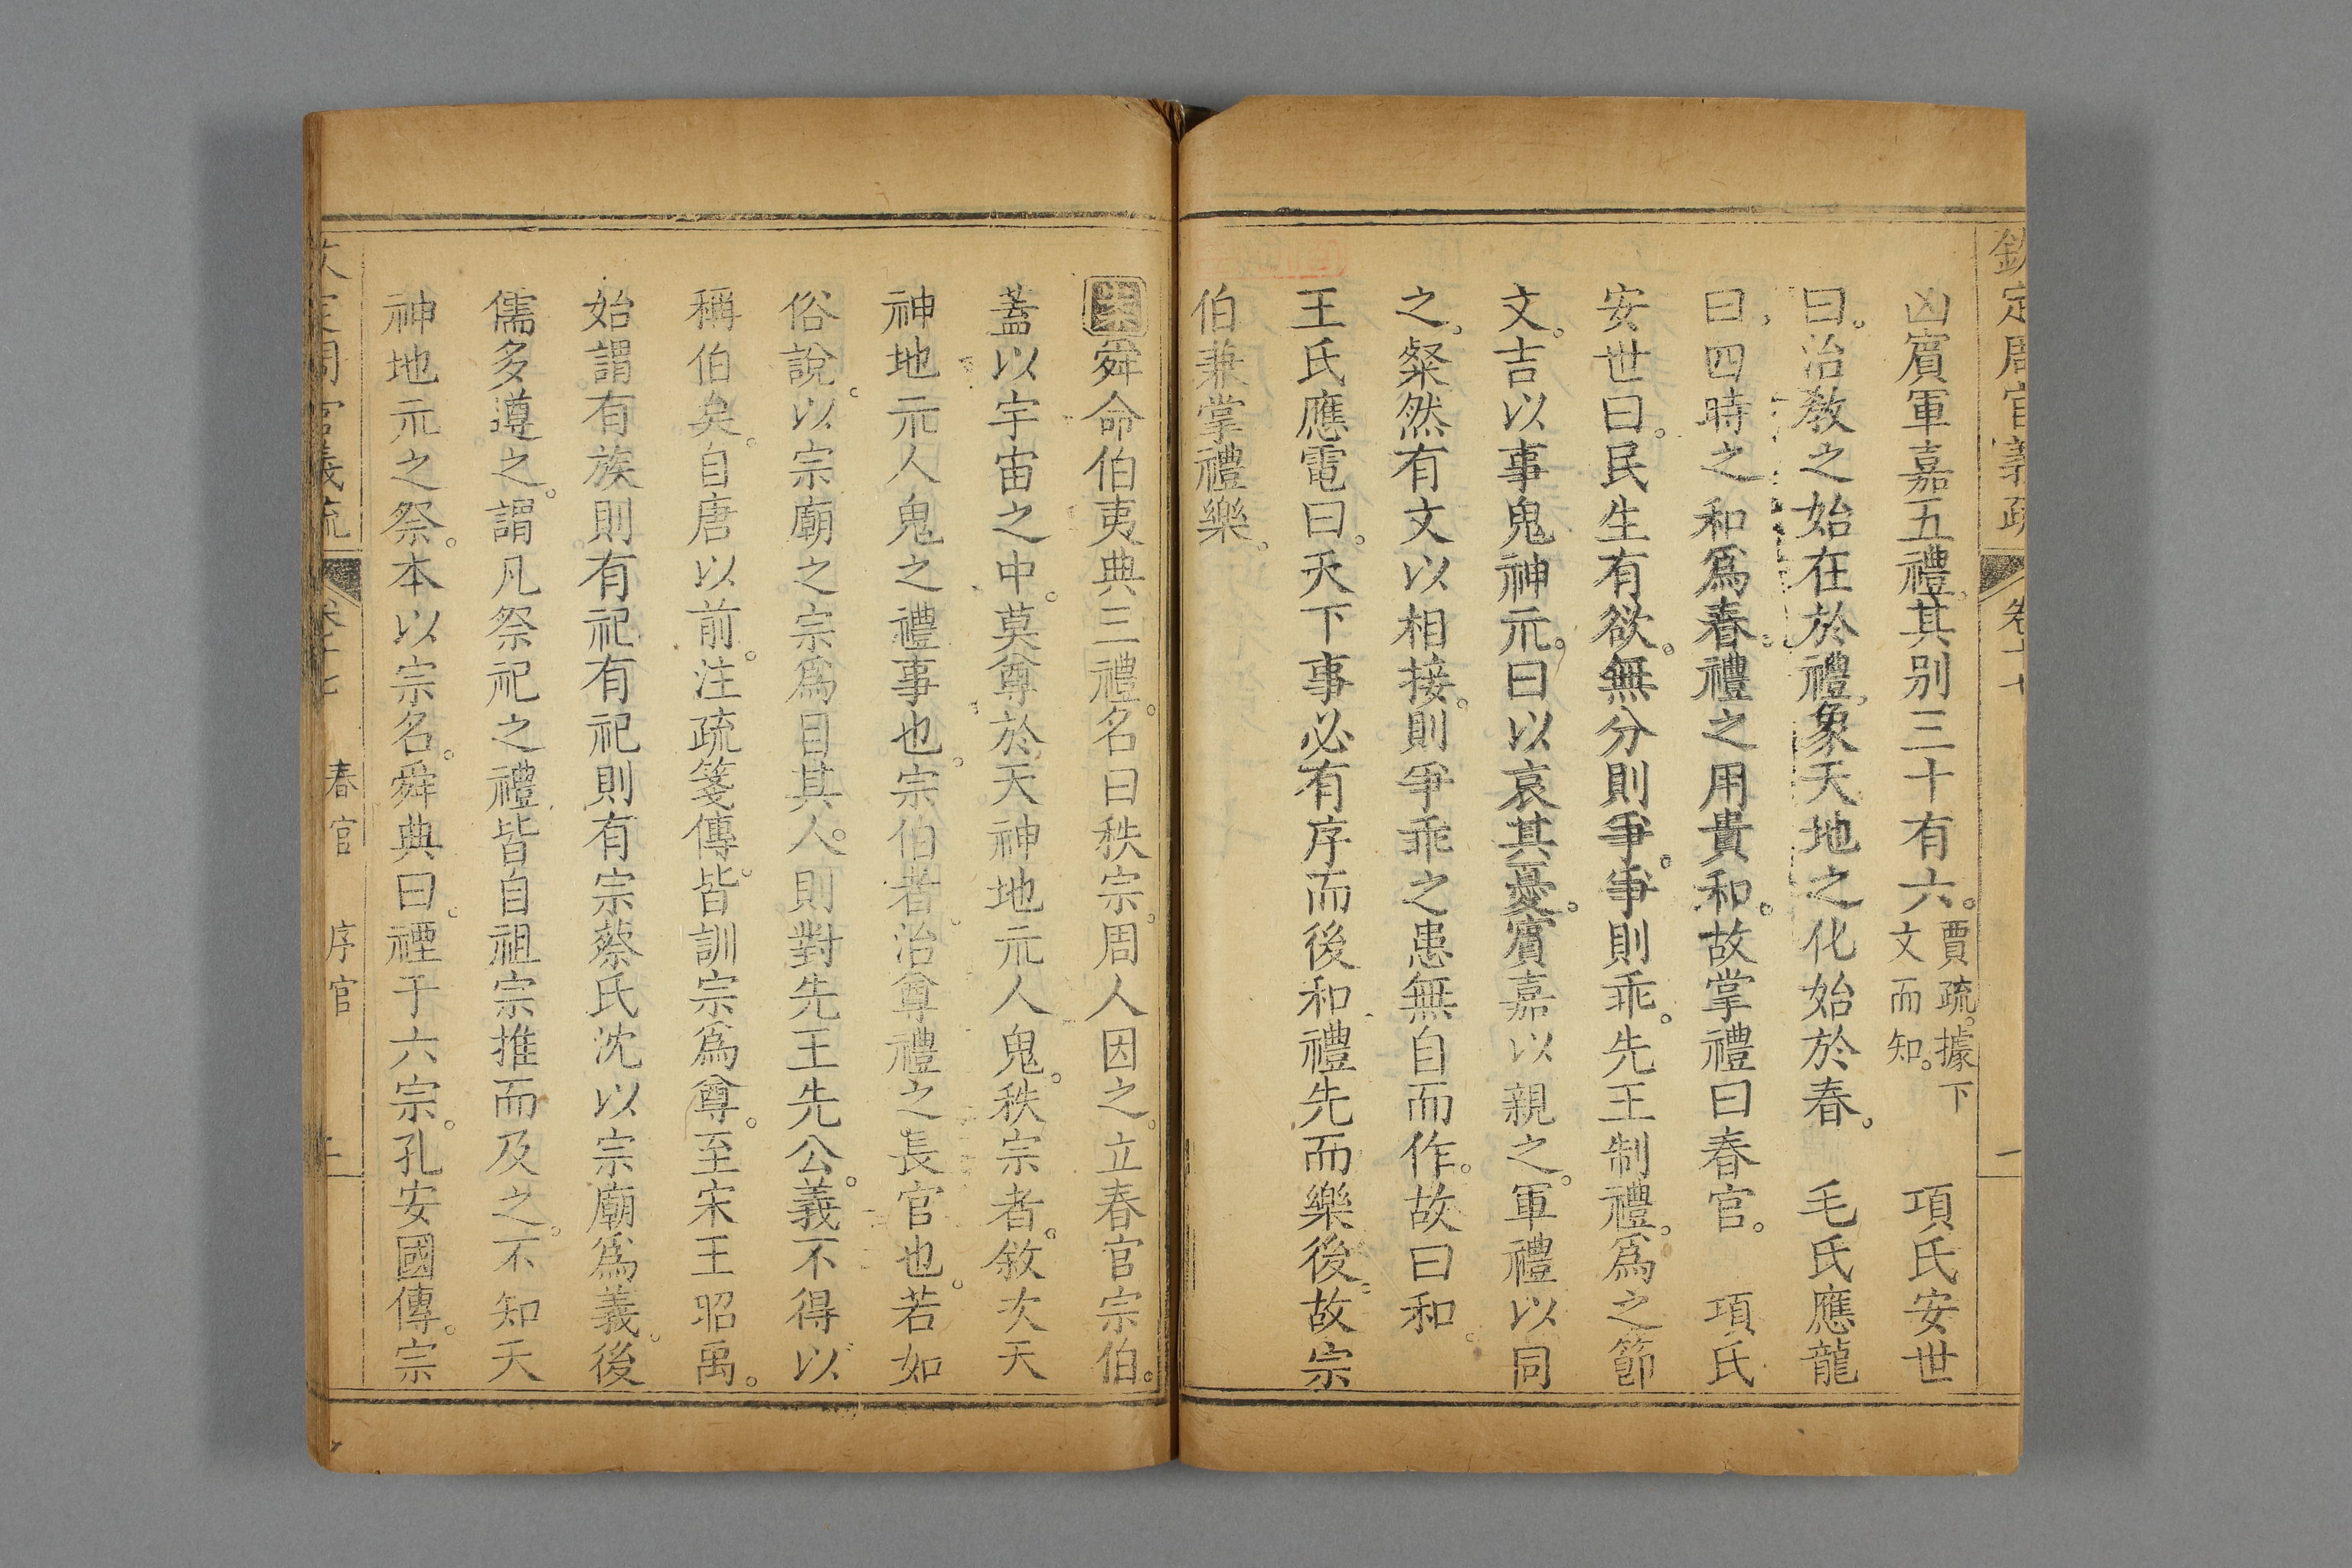 欽定周官義疏 卷十七 一
凶賓軍嘉五禮。其別三十有六。賈疏。據下文而知。 項氏安世
曰。治教之始在於禮。象天地之化始於春。 毛氏應龍
曰。四時之和爲春。禮之用貴和。故掌禮曰春官。 項氏
安世曰。民生有欲。無分則爭。爭則乖。先王制禮。爲之節
文。吉以事鬼神示。凶以哀其憂。賓嘉以親之。軍禮以同
之。粲然有文以相接。則爭乖之患無自而作。故曰和。
王氏應電曰。天下事必有序而後和。禮先而樂後。故宗
伯兼掌禮樂。
舜命伯夷典三禮。名曰秩宗。周人因之。立春官宗伯。
蓋以宇宙之中。莫尊於天神地示人鬼。秩宗者。敘次天
神地示人鬼之禮事也。宗伯者。治尊禮之長官也。若如
俗說。以宗廟之宗爲目其人。則對先王先公。義不得以
稱伯矣。自唐以前。注疏箋傳。皆訓宗爲尊。至宋王昭禹。
始謂有族則有祀有祀則有宗蔡氏沈以宗廟爲義。後
儒多遵之。謂凡祭祀之禮皆自祖宗推而及之。不知天
神地示之祭。本以宗名。舜典曰。禋于六宗。孔安國傳。宗
欽定周官義疏 卷十七 春官 序官 三